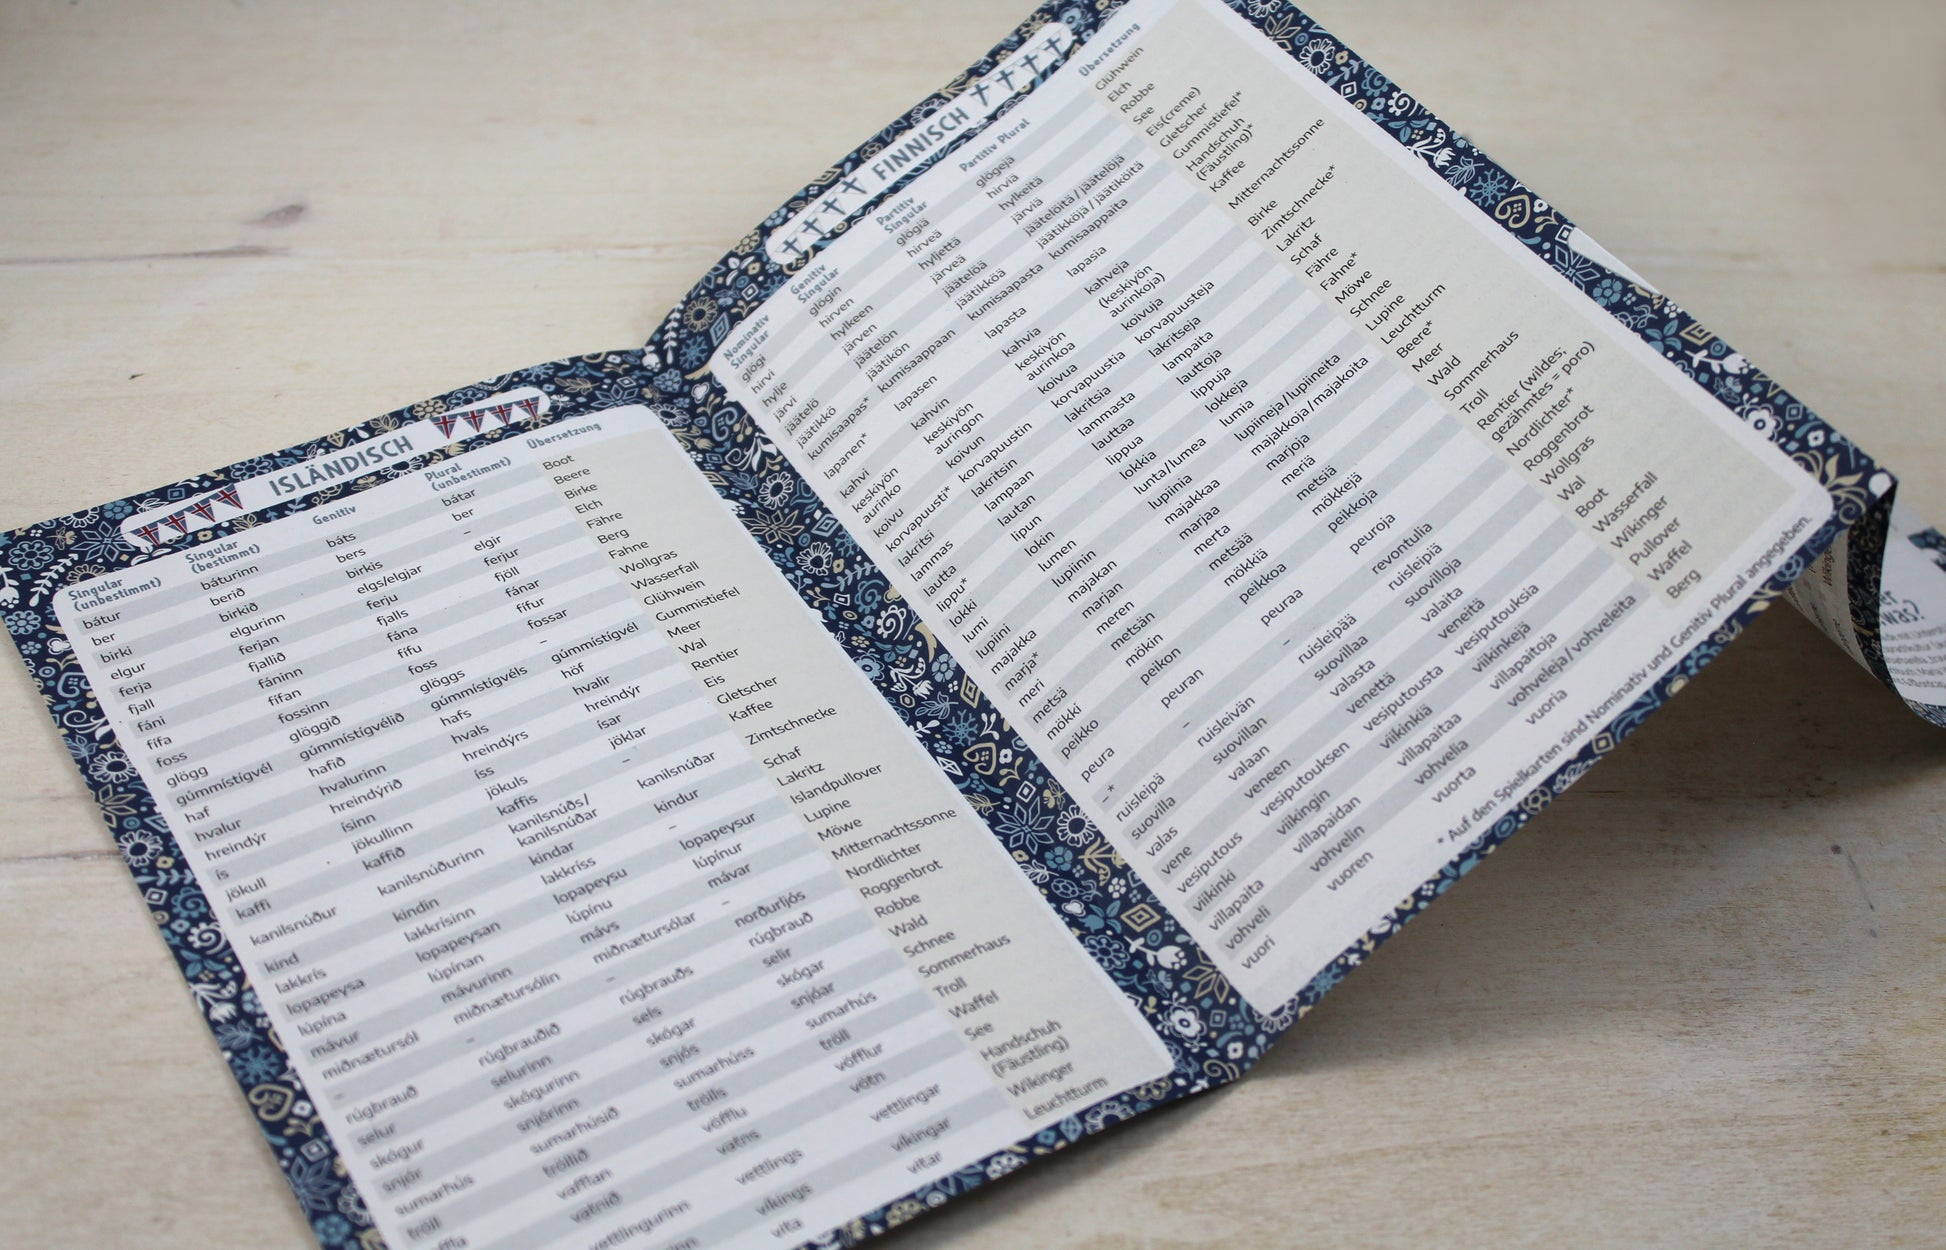 ISLÄNDISCH
Singular (unbestimmt) Singular (bestimmt) Genitiv Plural (unbestimmt) Übersetzung
bátur báturinn báts bátar Boot
ber berið bers ber Beere
birki birkið birkis – Birke
elgur elgurinn elgs/elgjar elgir Elch
ferja ferjan ferju ferjur Fähre
fjall fjallið fjalls fjöll Berg
fáni fáninn fána fánar Fahne
fífa fífan fífu fífur Wollgras
foss fossinn foss fossar Wasserfall
glögg glöggið glöggs – Glühwein
gúmmístígvél gúmmístígvélið gúmmístígvéls gúmmístígvél Gummistiefel
haf hafið hafs höf Meer
hvalur hvalurinn hvals hvalir Wal
hreindýr hreindýrið hreindýrs hreindýr Rentier
ís ísinn íss ísar Eis
jökull jökullinn jökuls jöklar Gletscher
kaffi kaffið kaffis – Kaffee
kanilsnúður kanilsnúðurinn kanilsnúðs/ kanilsnúðar kanilsnúðar Zimtschnecke
kind kindin kindar kindur Schaf
lakkrís lakkrísinn lakkríss – Lakritz
lopapeysa lopapeysan lopapeysu lopapeysur Islandpullover
lúpína lúpínan lúpínu lúpínur Lupine
mávur mávurinn mávs mávar Möwe
miðnætursól miðnætursólin miðnætursólar – Mitternachtssonne
– – – norðurljós Nordlichter
rúgbrauð rúgbrauðið rúgbrauðs rúgbrauð Roggenbrot
selur selurinn sels selir Robbe
skógur skógurinn skógar skógar Wald
snjór snjórinn snjós snjóar Schnee
sumarhús sumarhúsið sumarhúss sumarhús Sommerhaus
tröll tröllið trölls tröll Troll
vafflan vöfflu vöfflur Waffel
vatnið vatns vötn See
vettlingurinn vettlings vettlingar Handschuh (Fäustling)
víkings víkingar Wikinger
vita vitar Leuchtturm
FINNISCH
Nominativ Singular Genitiv Singular Partitiv Singular Partitiv Plural Übersetzung
glögi glögin glögiä glögejä Glühwein
hirvi hirven hirveä hirviä Elch
hylje hylkeen hyljettä hylkeitä Robbe
järvi järven järveä järviä See
jäätelö jäätelön jäätelöä jäätelöitä / jäätelöjä Eis(creme)
jäätikkö jäätikön jäätikköä jäätikköjä / jäätiköitä Gletscher
kumisaapas* kumisaappaan kumisaapasta kumisaappaita Gummistiefel*
lapanen* lapasen lapasta lapasia Handschuh (Fäustling)*
kahvi kahvin kahvia kahveja Kaffee
keskiyön aurinko keskiyön auringon keskiyön aurinkoa (keskiyön aurinkoja) Mitternachtssonne
koivu koivun koivua koivuja Birke
korvapuusti* korvapuustin korvapuustia korvapuusteja Zimtschnecke*
lakritsi lakritsin lakritsia lakritseja Lakritz
lammas lampaan lammasta lampaita Schaf
lautta lautan lauttaa lauttoja Fähre
lippu* lipun lippua lippuja Fahne*
lokki lokin lokkia lokkeja Möwe
lumi lumen lunta/lumea lumia Schnee
lupiini lupiinin lupiinia lupiineja/lupiineita Lupine
majakka majakan majakkaa majakkoja/majakoita Leuchtturm
marja* marjan marjaa marjoja Beere*
meri meren merta meriä Meer
metsä metsän metsää metsiä Wald
mökki mökin mökkiä mökkejä Sommerhaus
peikko peikon peikkoa peikkoja Troll
peura peuran peuraa peuroja Rentier (wildes; gezähmtes = poro)
–* – – revontulia Nordlichter*
ruisleipä ruisleivän ruisleipää ruisleipiä Roggenbrot
suovilla suovillan suovillaa suovilloja Wollgras
valas valaan valasta valaita Wal
vene veneen venettä veneitä Boot
vesiputous vesiputouksen vesiputousta vesiputouksia Wasserfall
viikinki viikingin viikinkiä viikinkejä Wikinger
villapaita villapaidan villapaitaa villapaitoja Pullover
vohveli vohvelin vohvelia vohveleja/vohveleita Waffel
vuori vuoren vuorta vuoria Berg
* Auf den Spielkarten sind Nominativ und Genitiv Plural angegeben.
was?